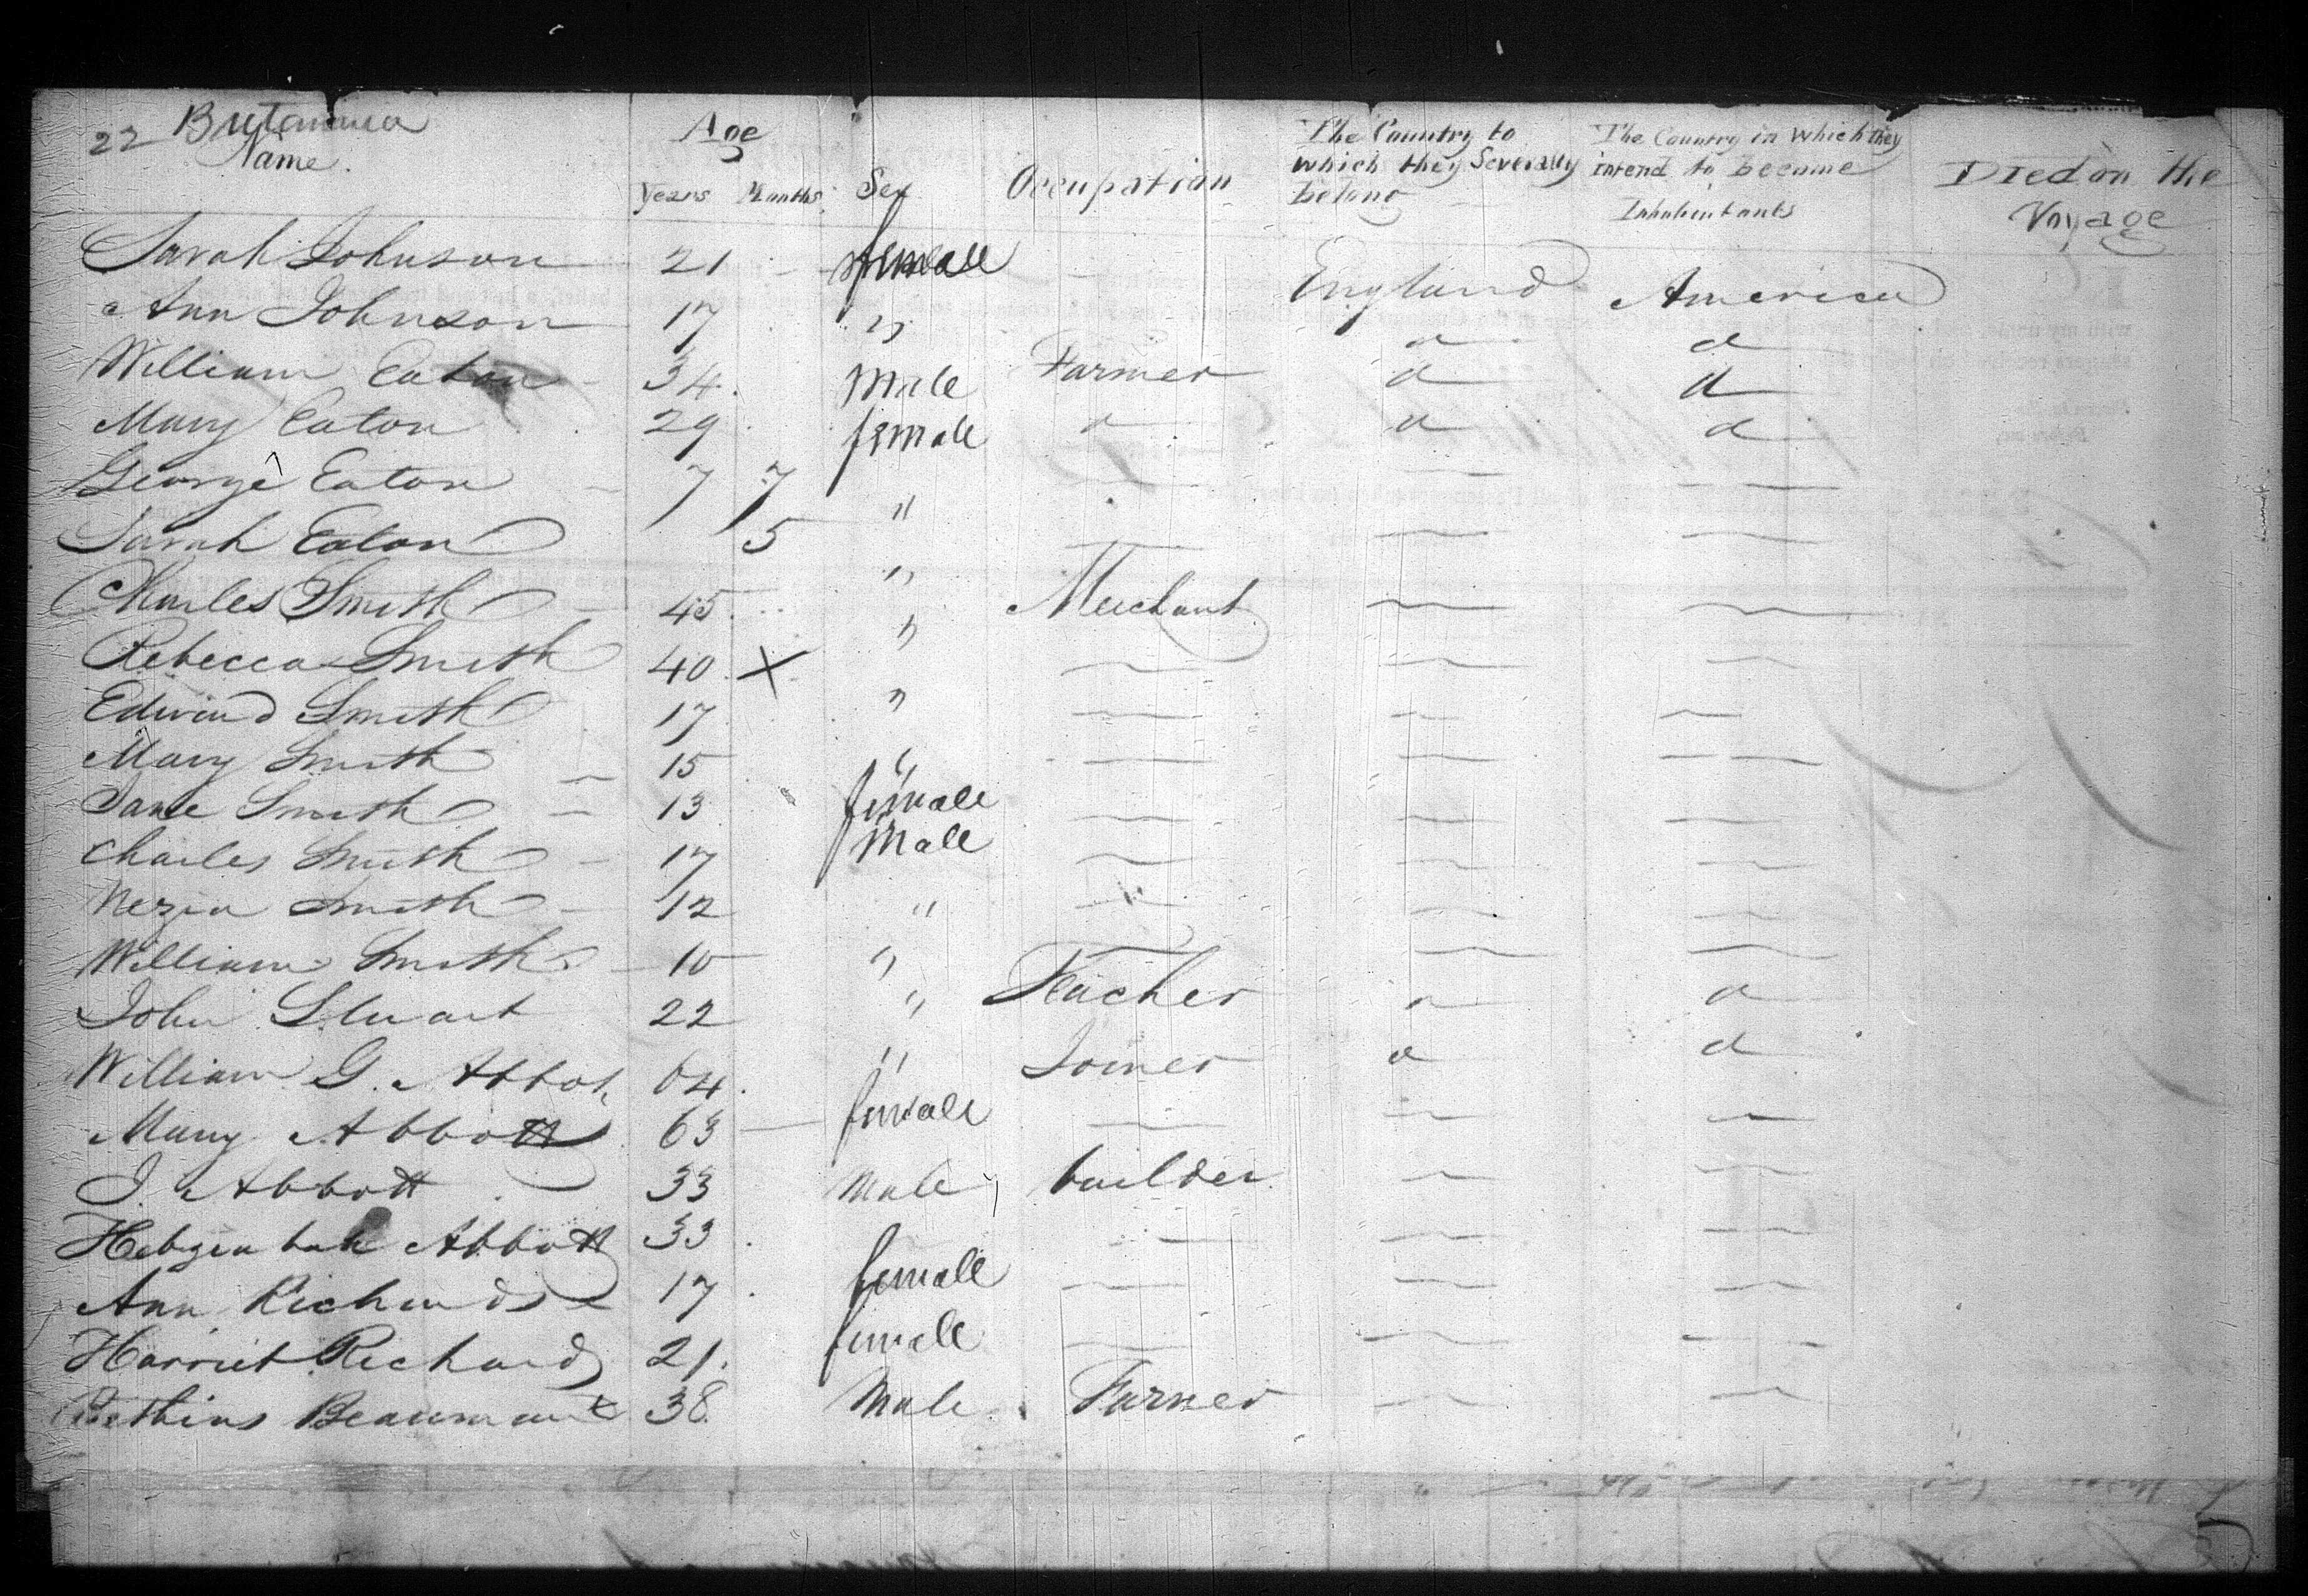 22 Britannia
Name. Age Years Months Sex Occupation The Country to which they Severally belong The Country in which they intend to become Inhabitants Died on the Voyage
Sarah Johnson 21 female England America
Ann Johnson 17 " d d
William Eaton 34 Male Farmer d d
Mary Eaton 29 female d d d
George Eaton 7 7 "
Sarah Eaton 5 "
Charles Smith 45 " Merchant
Rebecca Smith 40 X "
Edward Smith 17
Mary Smith 15 "
Jane Smith 13 female
Charles Smith 17 Male
Smith 12 "
William Smith 10 "
John Stuart 22 " Teacher d d
William G. Abbot 64 " Joiner d d
Mary Abbott 63 female
J. Abbott 33 Male builder
Abbott 33
Ann Richards 17 female
Harriet Richards 21 female
Beaumont 38 Male Farmer